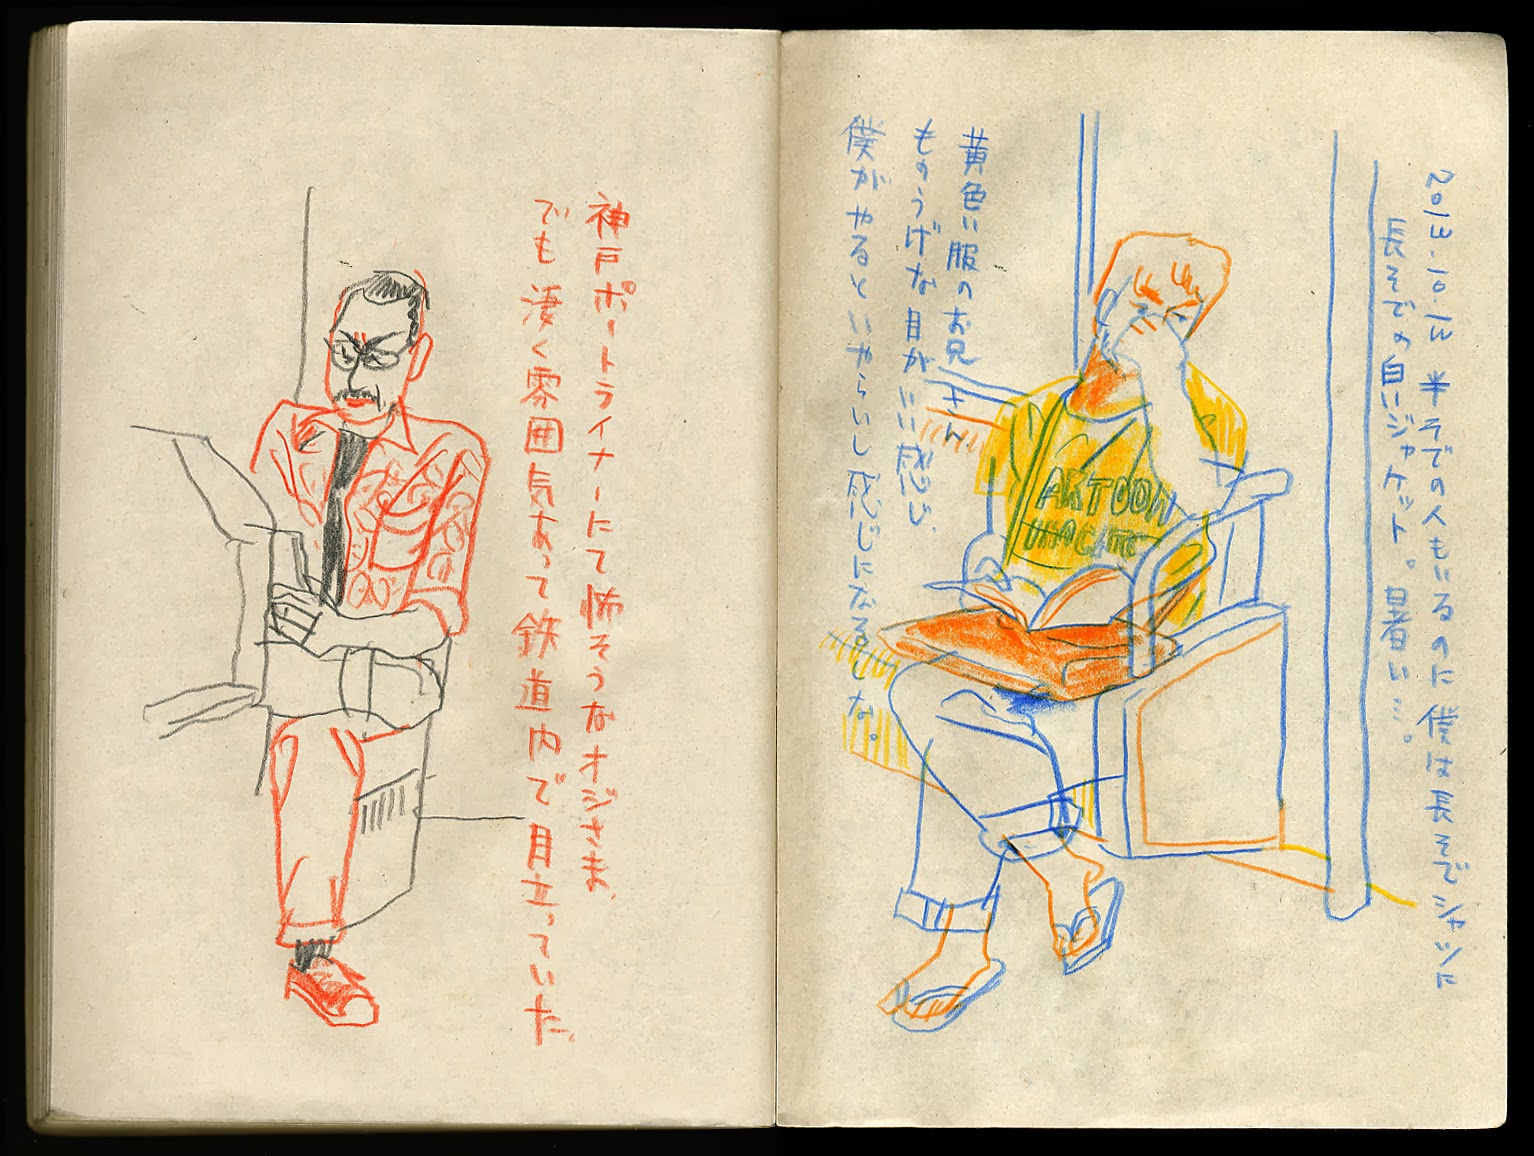 2013.10.13 半そでの人もいるのに僕は長そでシャツに
長そでの白いジャケット。暑い…。
黄色い服のお兄さん。
ものうげな目がいい感じ、
僕がやるといやらいし感じになるしな。
ARTOON
神戸ポートライナーにて怖そうなオジさま、
でも凄く雰囲気あって鉄道内で目立っていた。